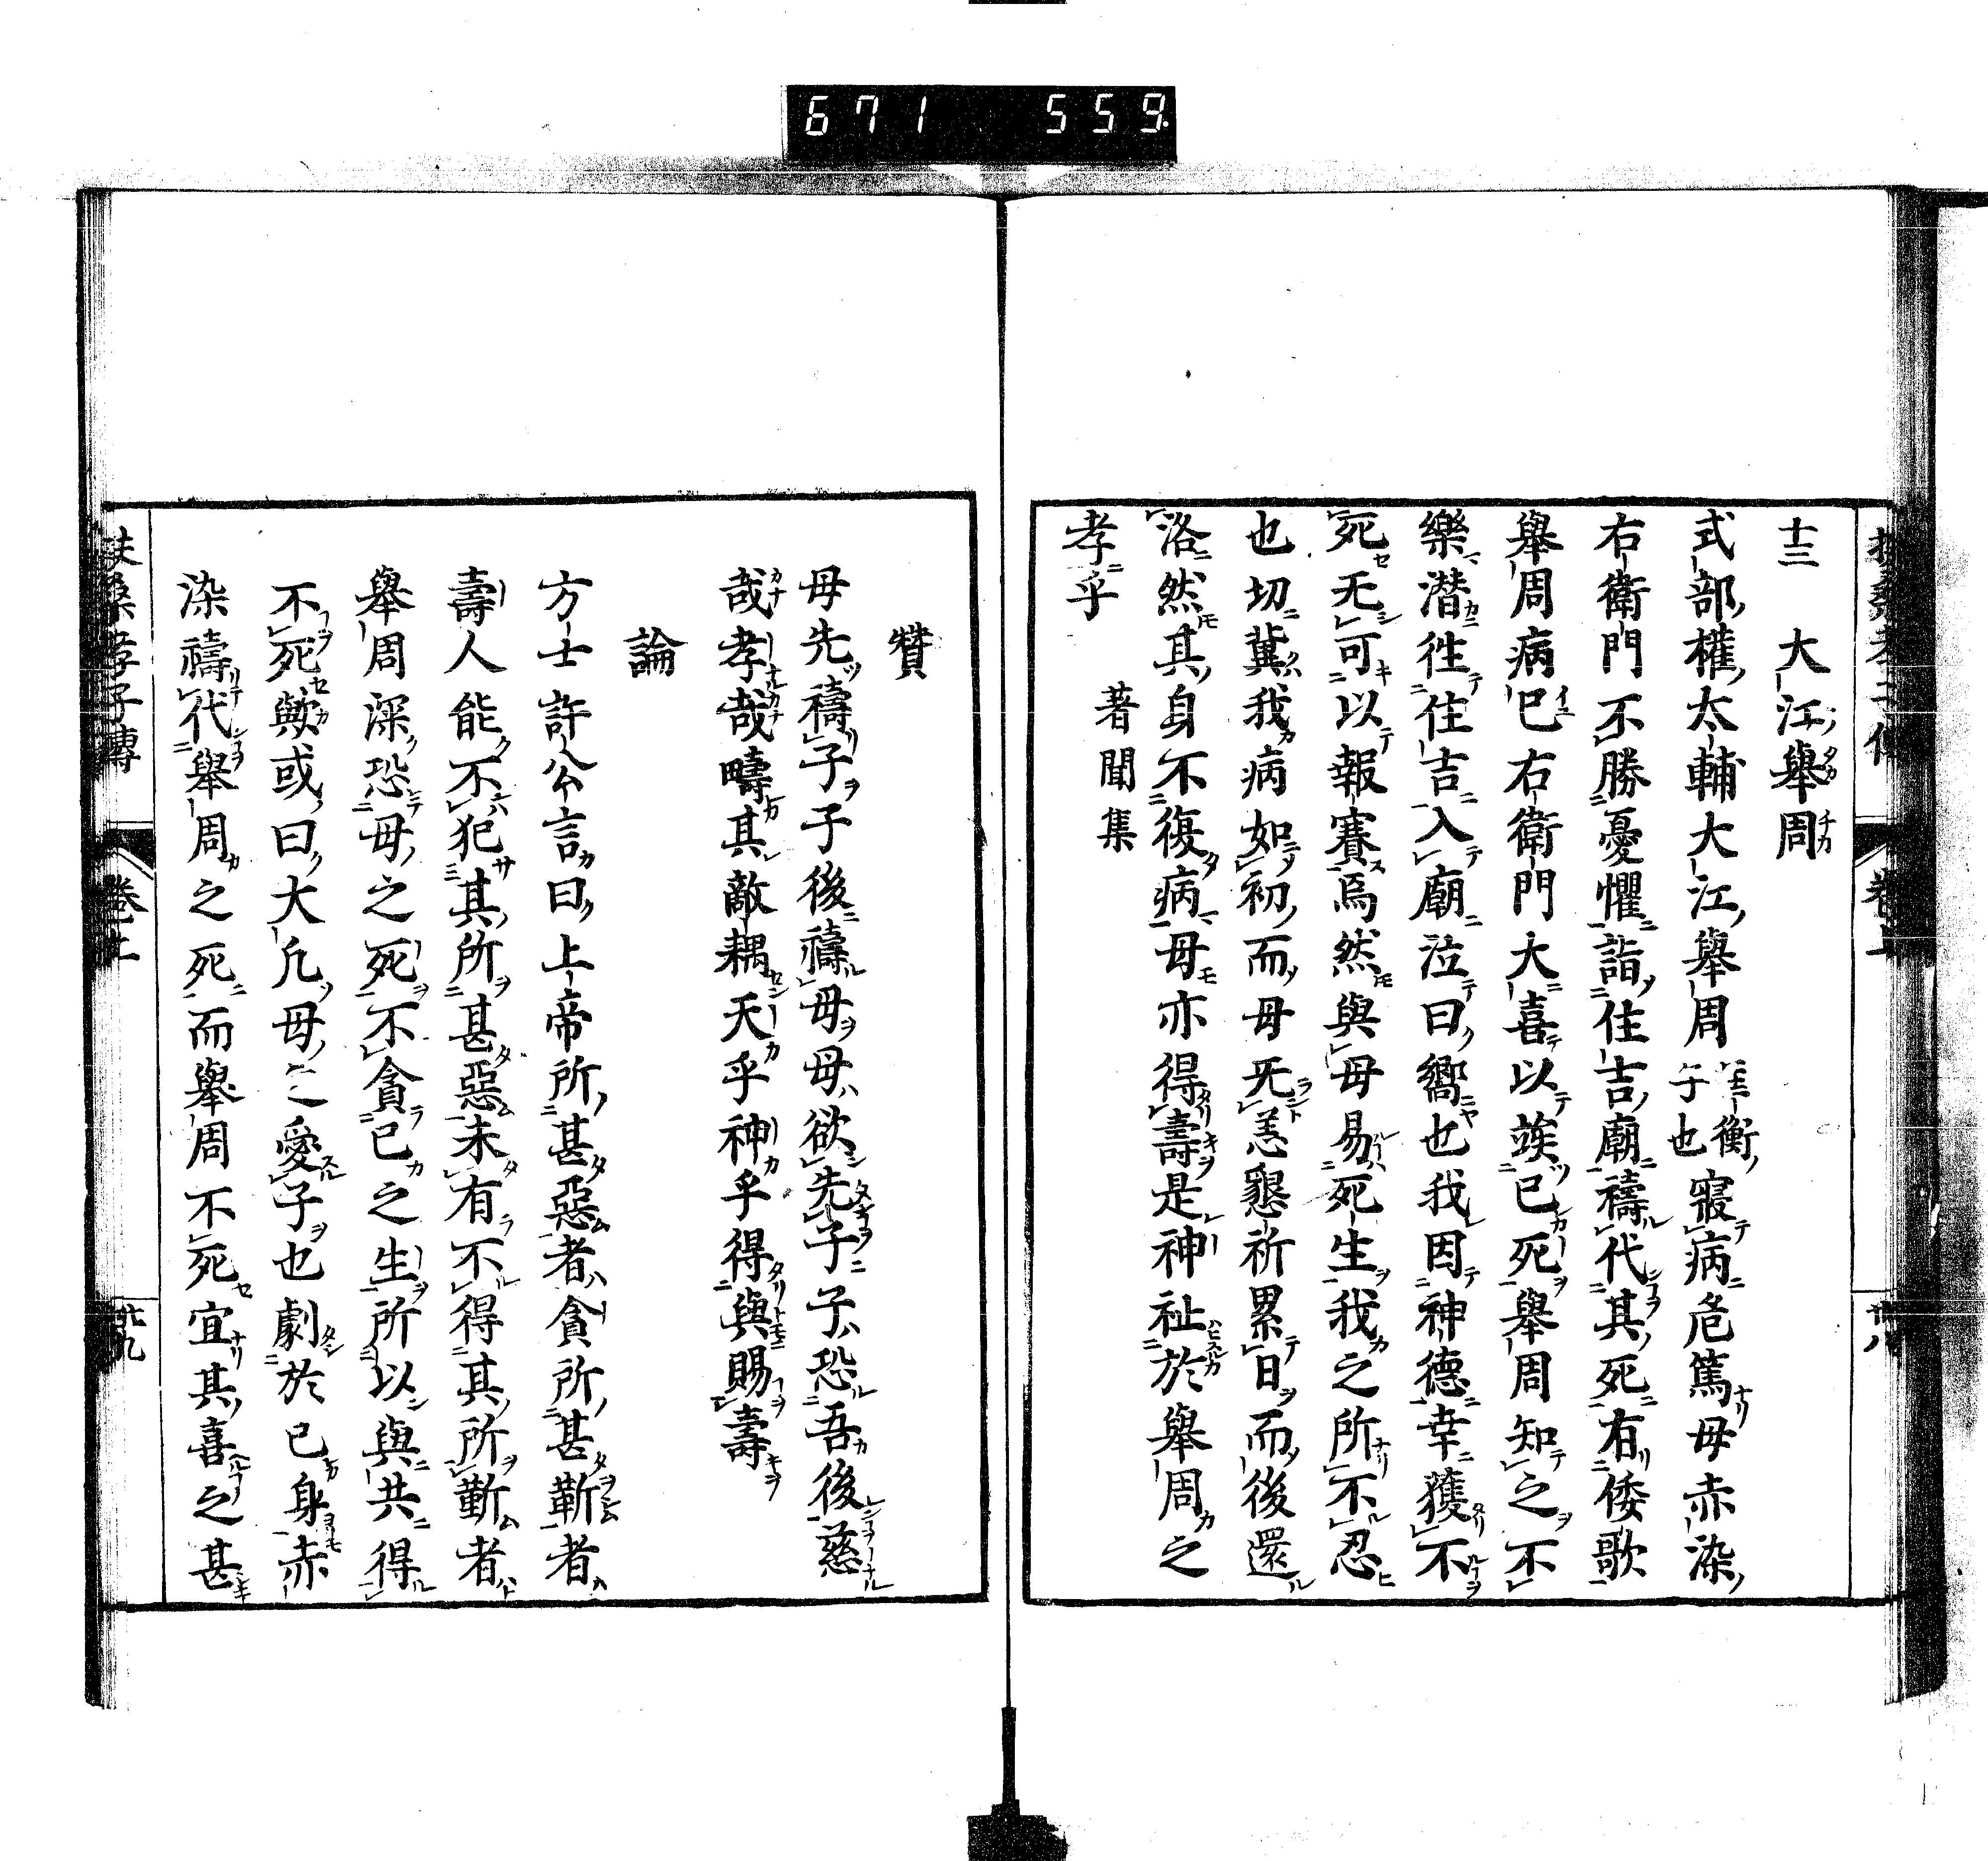 671 559
十三 大江舉周
式部權太輔大江舉周匡衡子也寢病危篤母赤染
右衛門不勝憂懼詣住吉廟禱代其死有倭歌
舉周病已右衛門大喜以竢已死舉周知之不
樂潛往住吉入廟泣曰嚮也我因神德幸獲不
死无可以報賽焉然與母易死生我之所不忍
也切冀我病如初而母无恙懇祈累日而後還
洛然其身不復病母亦得壽是神祉於舉周之
孝乎
著聞集
卷上
廿八
贊
母先禱子子後禱母母欲先子子恐吾後慈
哉孝哉疇其敵耦天乎神乎得與賜壽
論
方士許公言曰上帝所甚惡者貪所甚靳者
壽人能不犯其所甚惡未有不得其所靳者
舉周深恐母之死不貪已之生所以與共得
不死歟或曰大凡母之愛子也劇於已身赤
染禱代舉周之死而舉周不死宜其喜之甚
扶桑孝子傳
卷上
廿九